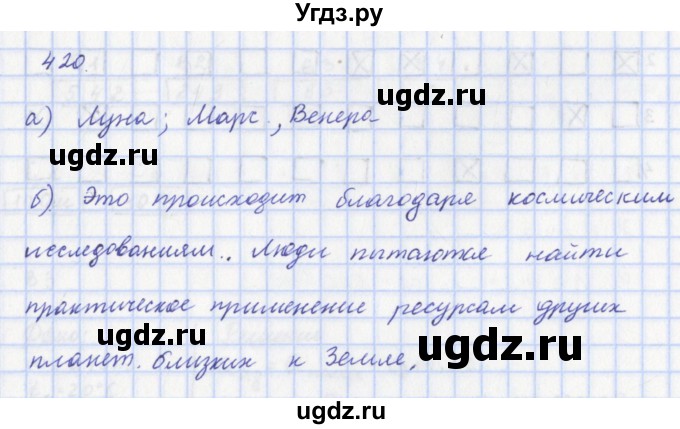 Угдз.ру
420.
а) Луна; Марс., Венера
ugdz.ru
ugdz.ru
б). Это происходит благодаря космическим
исследованиям.. Люди пытаются найти
практическое применение ресурсам других
ugdz.ru
ugdz.ru
планет. близких к Земле,
ugdz.ru